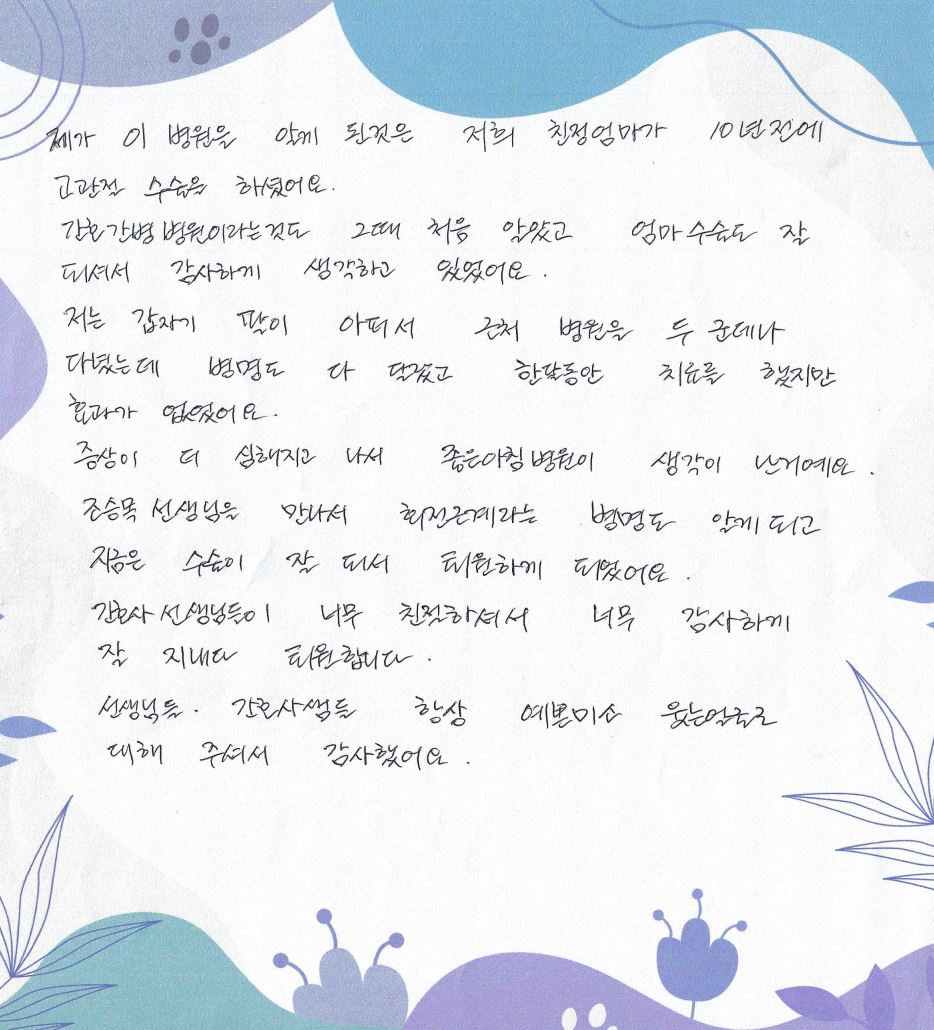 제가 이 병원을 알게 된것은 저희 친정엄마가 10년전에
고관절 수술을 하셨어요.
간호간병병원이라는것도 그때 처음 알았고 엄마수술도 잘
되셔서 감사하게 생각하고 있었어요.
저는 갑자기 팔이 아퍼서 근처 병원을 두 군데나
다녔는데 병명도 다 달랐고 한달동안 치료를 했지만
효과가 없었어요.
증상이 더 심해지고 나서 좋은아침병원이 생각이 난거예요.
조승목 선생님을 만나서 회전근개라는 병명도 알게 되고
지금은 수술이 잘 되서 퇴원하게 되었어요.
간호사 선생님들이 너무 친절하셔서 너무 감사하게
잘 지내다 퇴원합니다.
선생님들. 간호사쌤들 항상 예쁜미소 웃는얼굴로
대해 주셔서 감사했어요.